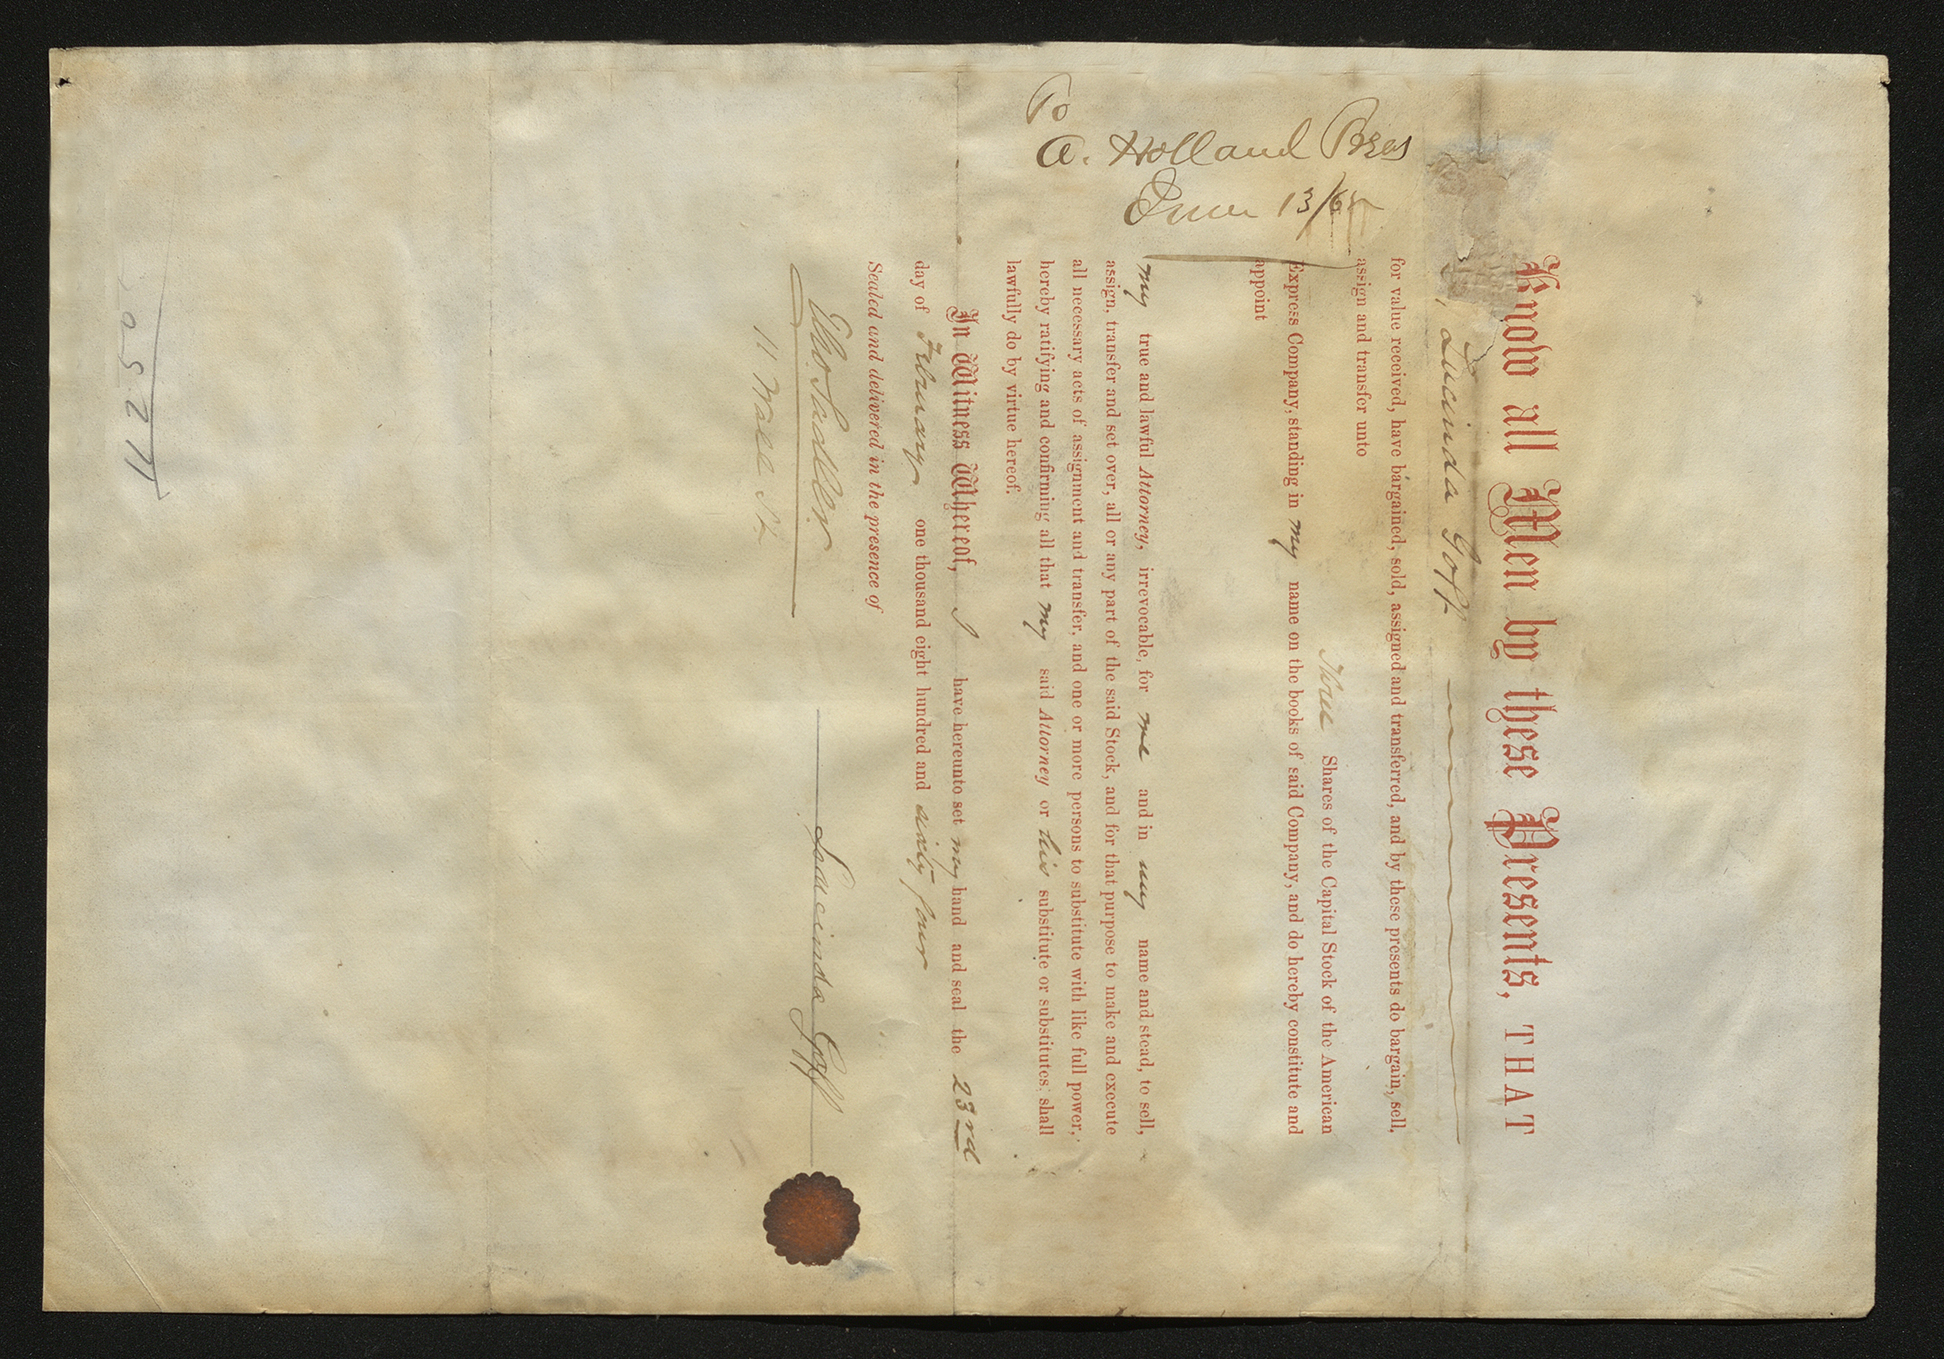 To
A. Holland Pres
June 13/65
Know all Men by these Presents, THAT
I, Lucinda Goff
for value received, have bargained, sold, assigned and transferred, and by these presents do bargain, sell,
assign and transfer unto
Three Shares of the Capital Stock of the American
Express Company, standing in my name on the books of said Company, and do hereby constitute and
appoint
my true and lawful Attorney, irrevocable, for me and in my name and stead, to sell,
assign, transfer and set over, all or any part of the said Stock, and for that purpose to make and execute
all necessary acts of assignment and transfer, and one or more persons to substitute with like full power,
hereby ratifying and confirming all that my said Attorney or his substitute or substitutes, shall
lawfully do by virtue hereof.
In Witness Whereof, I have hereunto set my hand and seal the 23rd
day of February one thousand eight hundred and sixty four
Sealed and delivered in the presence of
Tho. Sadler
11 Wall St.
Lucinda Goff